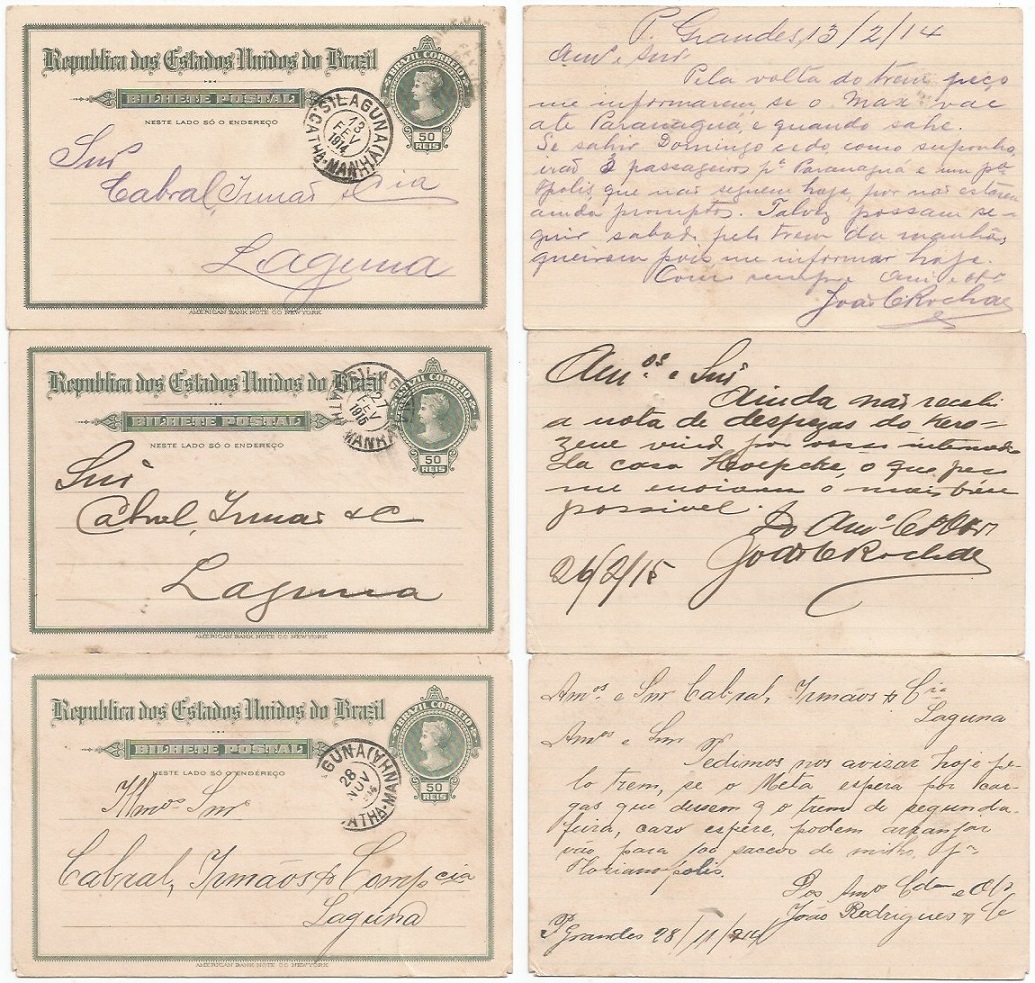 Republica dos Estados Unidos do Brazil
BILHETE POSTAL
NESTE LADO SÓ O ENDEREÇO
BRAZIL CORREIO
50
REIS
LAGUNA (MANHÃ)
13
FEV
1914
S. CATHA.
Snr
Cabral, Irmão & Cia
Laguna
AMERICAN BANK NOTE CO NEW YORK
P. Grandes, 13/2/14
Amº e Snr
Pela volta do trem peço
me informarem se o Max vae
ate Paranaguá, e quando sahe.
Se sahir Domingo cedo como supponho,
irão 3 passageiros pª Paranaguá e um pª
opolis, que não seguem hoje, por não estarem
ainda promptos. Talvez possam se-
guir sabado pelo trem da manhã,
queiram pois me informar hoje.
Com sempre
João C Rocha
Republica dos Estados Unidos do Brazil
BILHETE POSTAL
NESTE LADO SÓ O ENDEREÇO
BRAZIL CORREIO
50
REIS
27
FEV
1915
MANHÃ
Snr
Cabral, Irmão & C
Laguna
AMERICAN BANK NOTE CO NEW YORK
Amºs e Snr
Ainda não recebi
a nota de despezas do Kero-
zene vindo por vosso intermedio
da casa Hoepcke, o que peço
me enviarem o mais breve
possivel.
Do Amº
João C Rocha
26/2/15
Republica dos Estados Unidos do Brazil
BILHETE POSTAL
NESTE LADO SÓ O ENDEREÇO
BRAZIL CORREIO
50
REIS
GUNA (MANHÃ)
28
NOV
CATHA.
Snr
Cabral, Irmãos & Comp cia
Laguna
AMERICAN BANK NOTE CO NEW YORK
Amºs e Snr Cabral, Irmãos & Cia
Laguna
Amºs e Snr
Pedimos nos avizar hoje pe-
lo trem, se o Meta espera por car-
gas que dessem no trem de segunda
feira, cazo espere, podem arranjar
vão para 100 saccos de milho, pª
Florianopolis.
Dos Amº
João Rodrigues & Ca
P Grandes 28/11/914